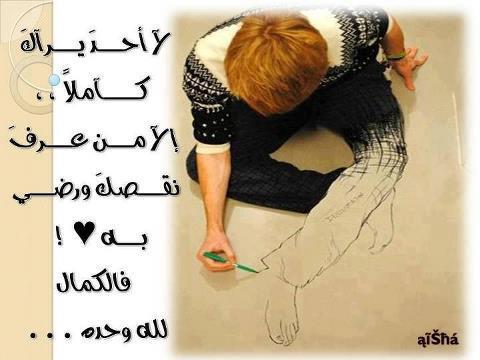 لآ أحـدَ يـرآكَ
كــآملاً ..
إلآ مـن عـرفَ
نقـصكَ ورضـي
بـه ♥ !
فالكمال
لله وحده ...
ąĩŠħá